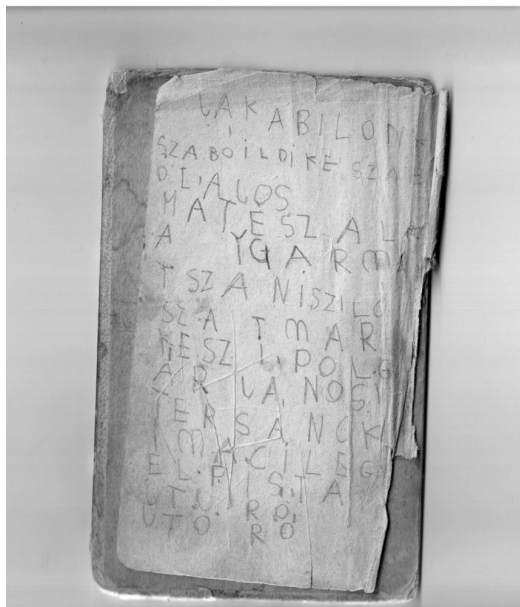 JAKABILON
SZABOILDIKE SZA
DI, AJOS
MATESZAL
A YGARMA
TSZANISZILO
SZATMAR
KESZI, POLG
ARJANOSI
TERSANCK
IMACILEG
EL.P.IS.TA
UT.O.R.O.
UTO. RO